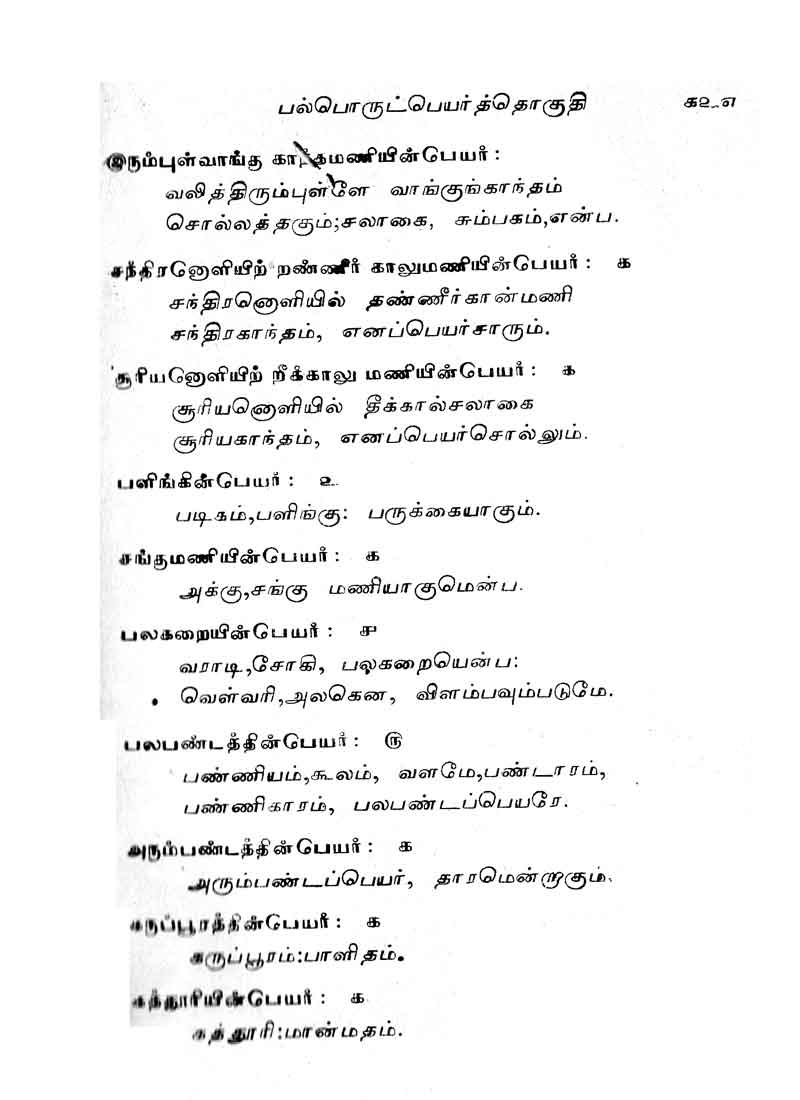 பல்பொருட்பெயர்த்தொகுதி ௧௨௭
இரும்புள்வாங்கு காந்தமணியின்பெயர் :
வலித்திரும்புள்ளே வாங்குங்காந்தம்
சொல்லத்தகும்;சலாகை, சும்பகம்,என்ப.
சந்திரனொளியிற் றண்ணீர் காலுமணியின்பெயர் : ௧
சந்திரனொளியில் தண்ணீர்கான்மணி
சந்திரகாந்தம், எனப்பெயர்சாரும்.
சூரியனொளியிற் றீக்காலு மணியின்பெயர் : ௧
சூரியனொளியில் தீக்கால்சலாகை
சூரியகாந்தம், எனப்பெயர்சொல்லும்.
பளிங்கின்பெயர் : ௨
படிகம்,பளிங்கு: பருக்கையாகும்.
சங்குமணியின்பெயர் : ௧
அக்கு,சங்கு மணியாகுமென்ப.
பலகறையின்பெயர் : ௪
வராடி,சோகி, பலகறையென்ப:
வெள்வரி,அலகென, விளம்பவும்படுமே.
பலபண்டத்தின்பெயர் : ௫
பண்ணியம்,கூலம், வளமே,பண்டாரம்,
பண்ணிகாரம், பலபண்டப்பெயரே.
அரும்பண்டத்தின்பெயர் : ௧
அரும்பண்டப்பெயர், தாரமென்றாகும்.
கருப்பூரத்தின்பெயர் : ௧
கருப்பூரம்:பாளிதம்.
கத்தூரியின்பெயர் : ௧
கத்தூரி:மான்மதம்.